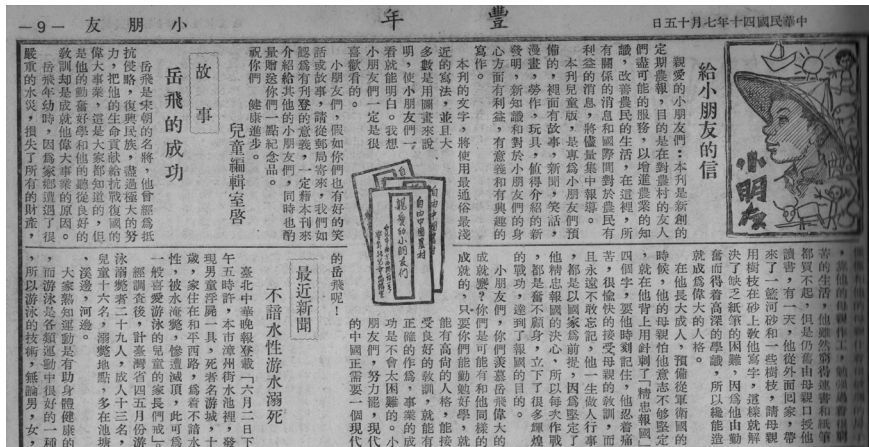 中華民國四十年七月十五日
豐年
小朋友
—9—
小朋友
給小朋友的信
親愛的小朋友們：本刊是新創的
定期農報，目的是在對農村的友人
們盡可能的服務，以增進農業的知
識，改善農民的生活，在這裡，所
有關係的消息和國際間對於農民有
利益的消息，將儘量集中報導。
本刊兒童版，是專爲小朋友們預
備的，裡面有故事，新聞，笑話，
漫畫，勞作，玩具，值得介紹的新
發明，新知識和對於小朋友們的身
心方面有利益，有意義和有興趣的
寫作。
本刊的文字，將使用最通俗最淺
近的寫法，並且大
多數是用圖畫來說
明，使小朋友們一
看就能明白。我想
小朋友們一定是很
喜歡看的。
自由中國農村
親愛的小朋友們
小朋友們，假如你們也有好的笑
話或故事，請從郵局寄來，我們如
認爲有刊登的意義，一定藉本刊來
介紹給其他的小朋友們，同時也酌
量贈送你們一點紀念品。
祝你們　健康進步。
兒童編輯室啓
故事
岳飛的成功
岳飛是宋朝的名將，他曾經爲抵
抗侵略，復興民族，盡過極大的努
力，把他的生命貢獻給抗戰復國的
偉大事業，這是大家都知道的，但
是他的勤奮好學和他的聽從良好的
敎訓却是成就他偉大事業的原因。
岳飛年幼時，因爲家鄉遭遇了很
嚴重的水災，損失了所有的財產，
苦的生活，他雖然窮得連書和紙筆
都買不起，但是仍舊由母親口授他
讀書，有一天，他從外面回家，帶
來了一籃河砂和一些樹枝，請母親
用樹枝在砂上敎他寫字，這樣就解
決了缺乏紙筆的困難，因爲他由勤
奮而得着高深的學識，所以纔能造
就成爲偉大的人格。
在他長大成人，預備從軍衛國的
時候，他的母親怕他意志不够堅定
，就在他背上用針刺了「精忠報國」
四個字，要他時刻記住，他忍着痛
苦，很愉快的接受母親的敎訓，而
且永遠不敢忘記，他一生做人行事
，都是以國家爲前提，因爲堅定了
他精忠報國的決心，所以每次作戰
，都是奮不顧身，立下了很多輝煌
的戰功，達到了報國的目的。
小朋友們，你們羨慕岳飛偉大的
成就麼？你們是可能有和他同樣的
成就的，只要你們能勤勉好學，就
能有高尚的人格，能接
受良好的敎訓，就能有
正確的作爲，事業的成
功是不會太困難的。小
朋友們，努力罷，現代
的中國正需要一個現代
的岳飛呢！
最近新聞
不諳水性游水溺死
臺北中華晚報登載「六月二日下
午五時許，本市漳州街水池裡，發
現男童浮屍一具，死者名游城，十
歲，家住在和平西路，爲着不諳水
性，被水淹斃，慘遭滅頂，此可爲
一般喜愛游泳的兒童的家長們戒」
經調查後，計臺灣省四五月份游
泳溺斃者二十九人，成人十三名，
兒童十六名，溺斃地點，多在池塘
、溪邊，河邊。
大家熟知運動是有助身體健康的
，而游泳是各類運動中很好的一種
，所以游泳的技術，無論男，女，